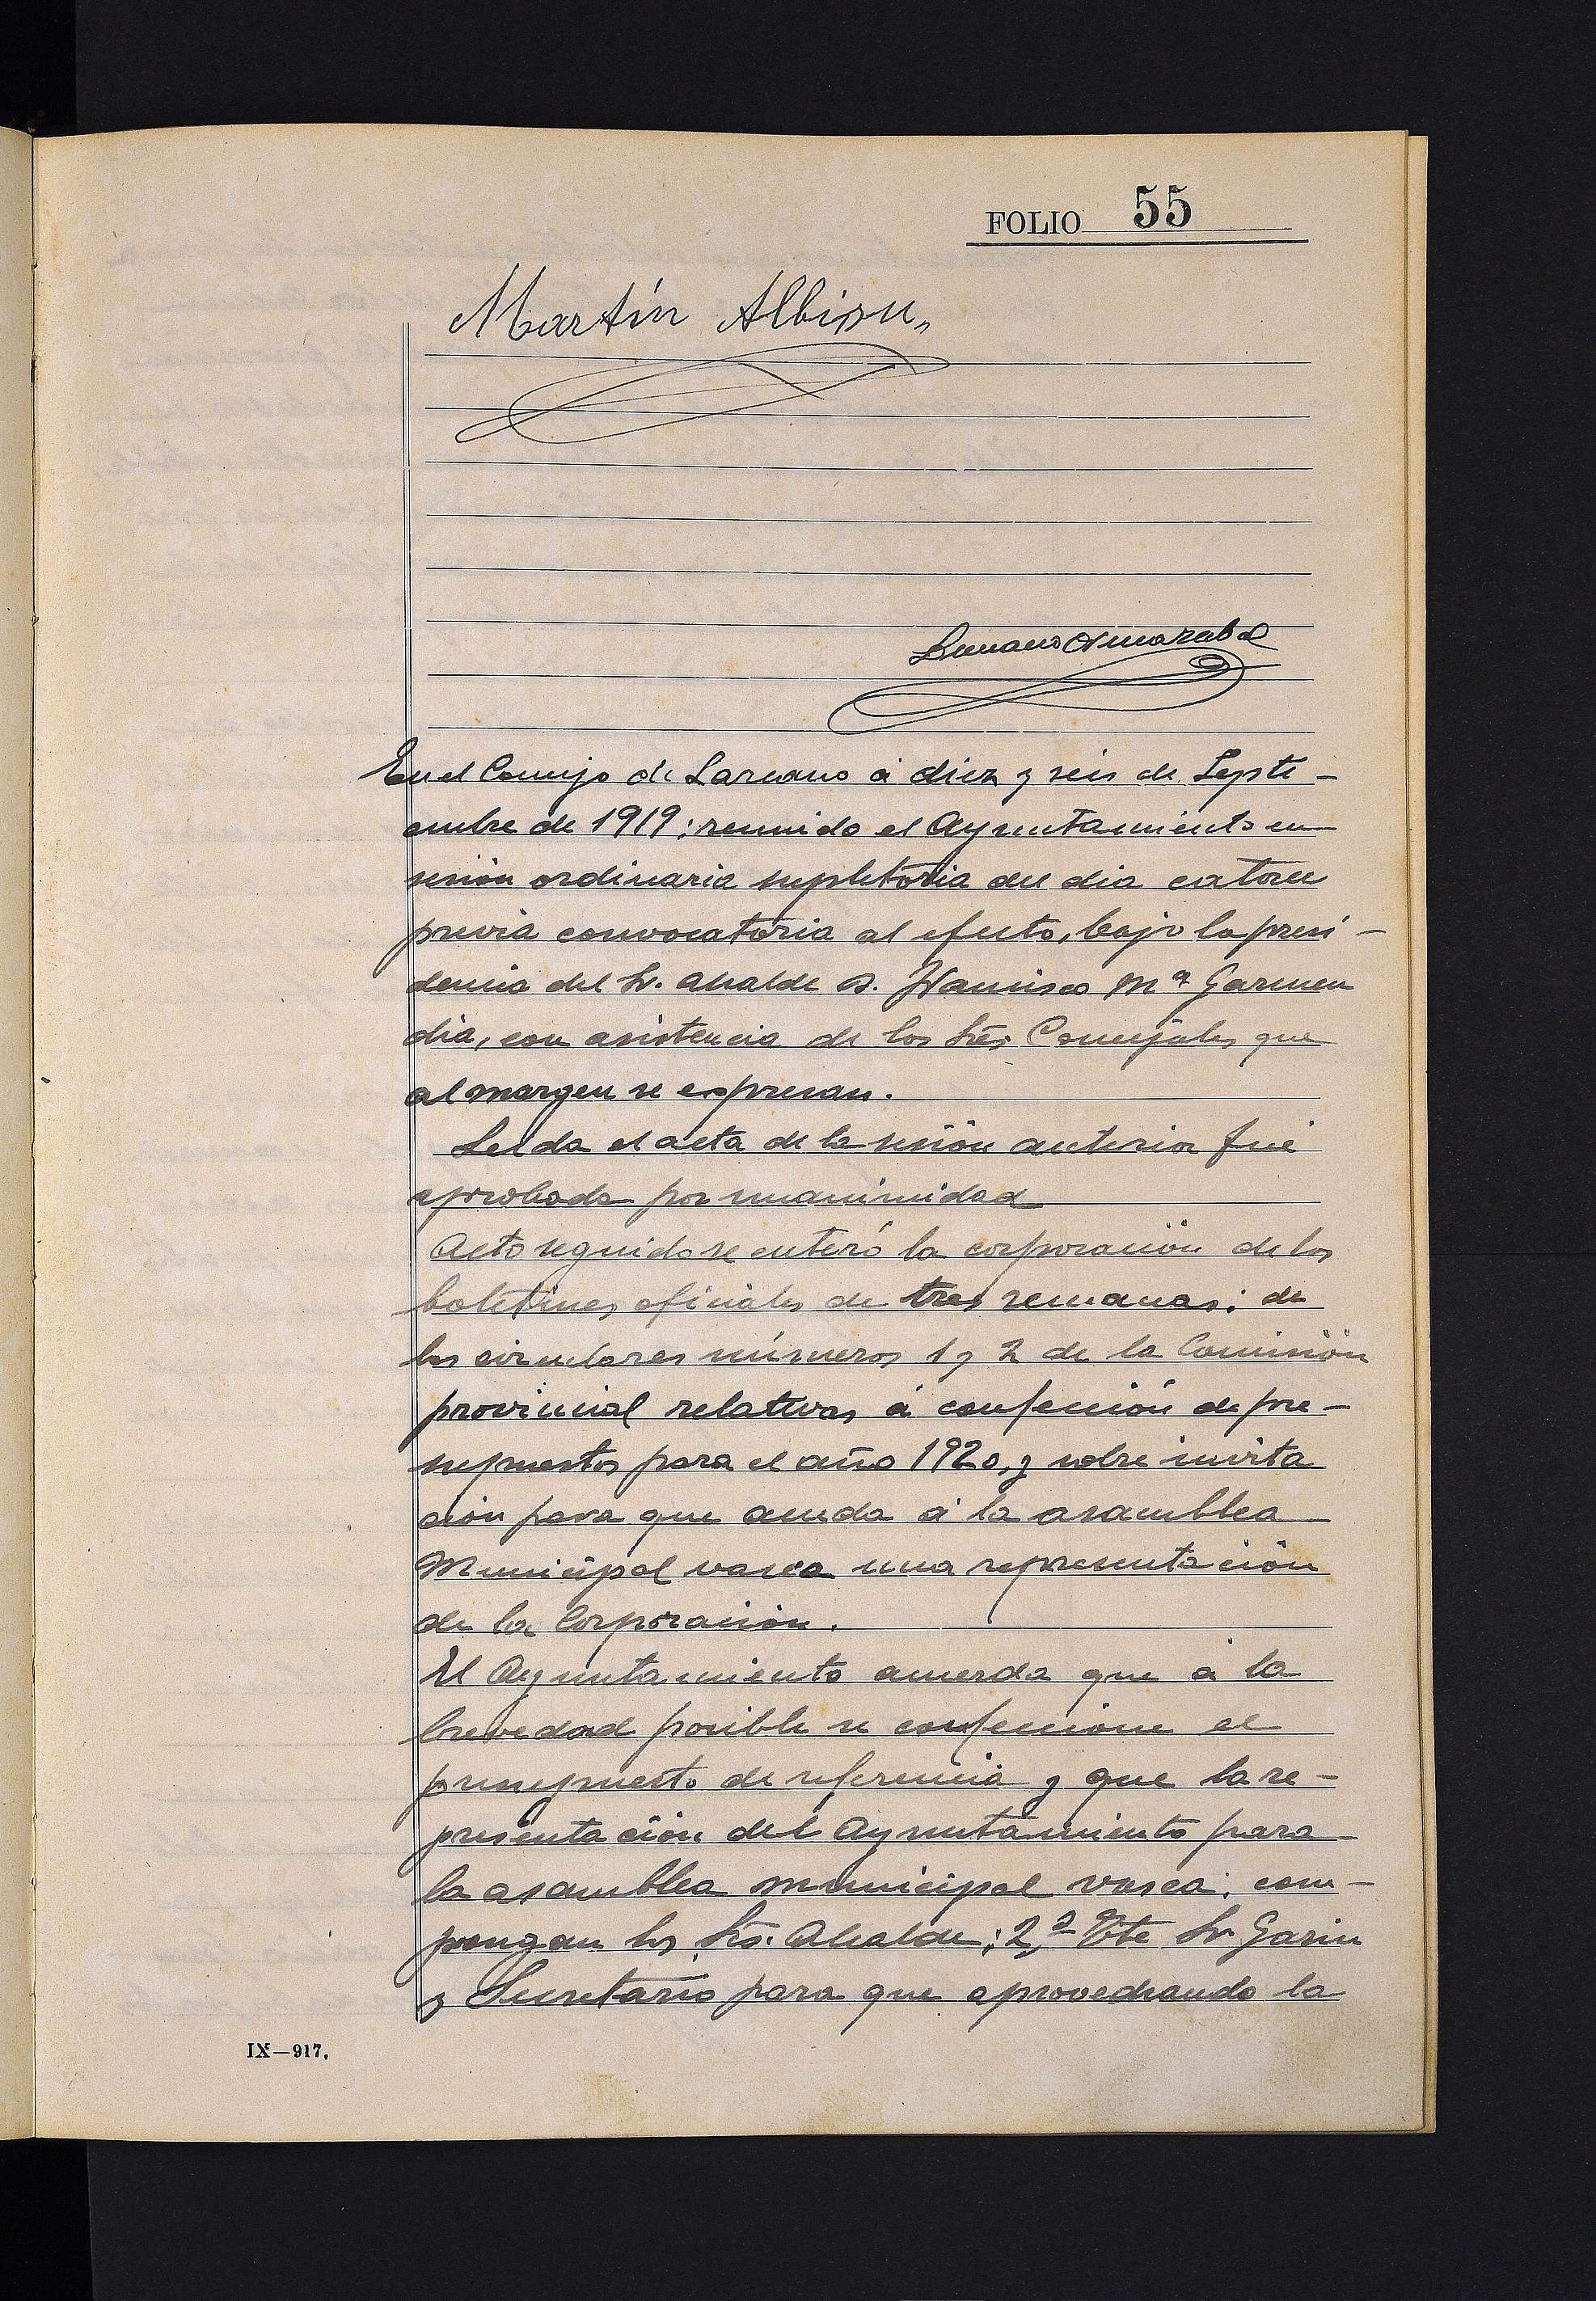 FOLIO 55
Martín Albisu
En el Concejo de Lazcano á diez y seis de Septi-
embre de 1919; reunido el Ayuntamiento en
sesión ordinaria supletoria del dia catorce
previa convocatoria al efecto, bajo la presi-
dencia del Sr. Alcalde D. Francisco Mª Garmen
dia, con asistencia de los Srês Concejales que
al margen se expresan.
Leida el acta de la sesión anterior fué
aprobada por unanimidad
Acto seguido se enteró la corporación de los
boletines oficiales de tres semanas; de
las circulares números 1 y 2 de la Comisión
provincial relativas á confección de pre-
supuestos para el año 1920, y sobre invita
ción para que acuda á la asamblea
Municipal vasca una representación
de la Corporación.
El Ayuntamiento acuerda que á la
brevedad posible se confeccione el
presupuesto de referencia y que la re-
presentación del Ayuntamiento para
la asamblea municipal vasca, com-
pongan los Srês. Alcalde; 2º Tte Sr Garin
y Secretario para que aprovechando la
IX—917.